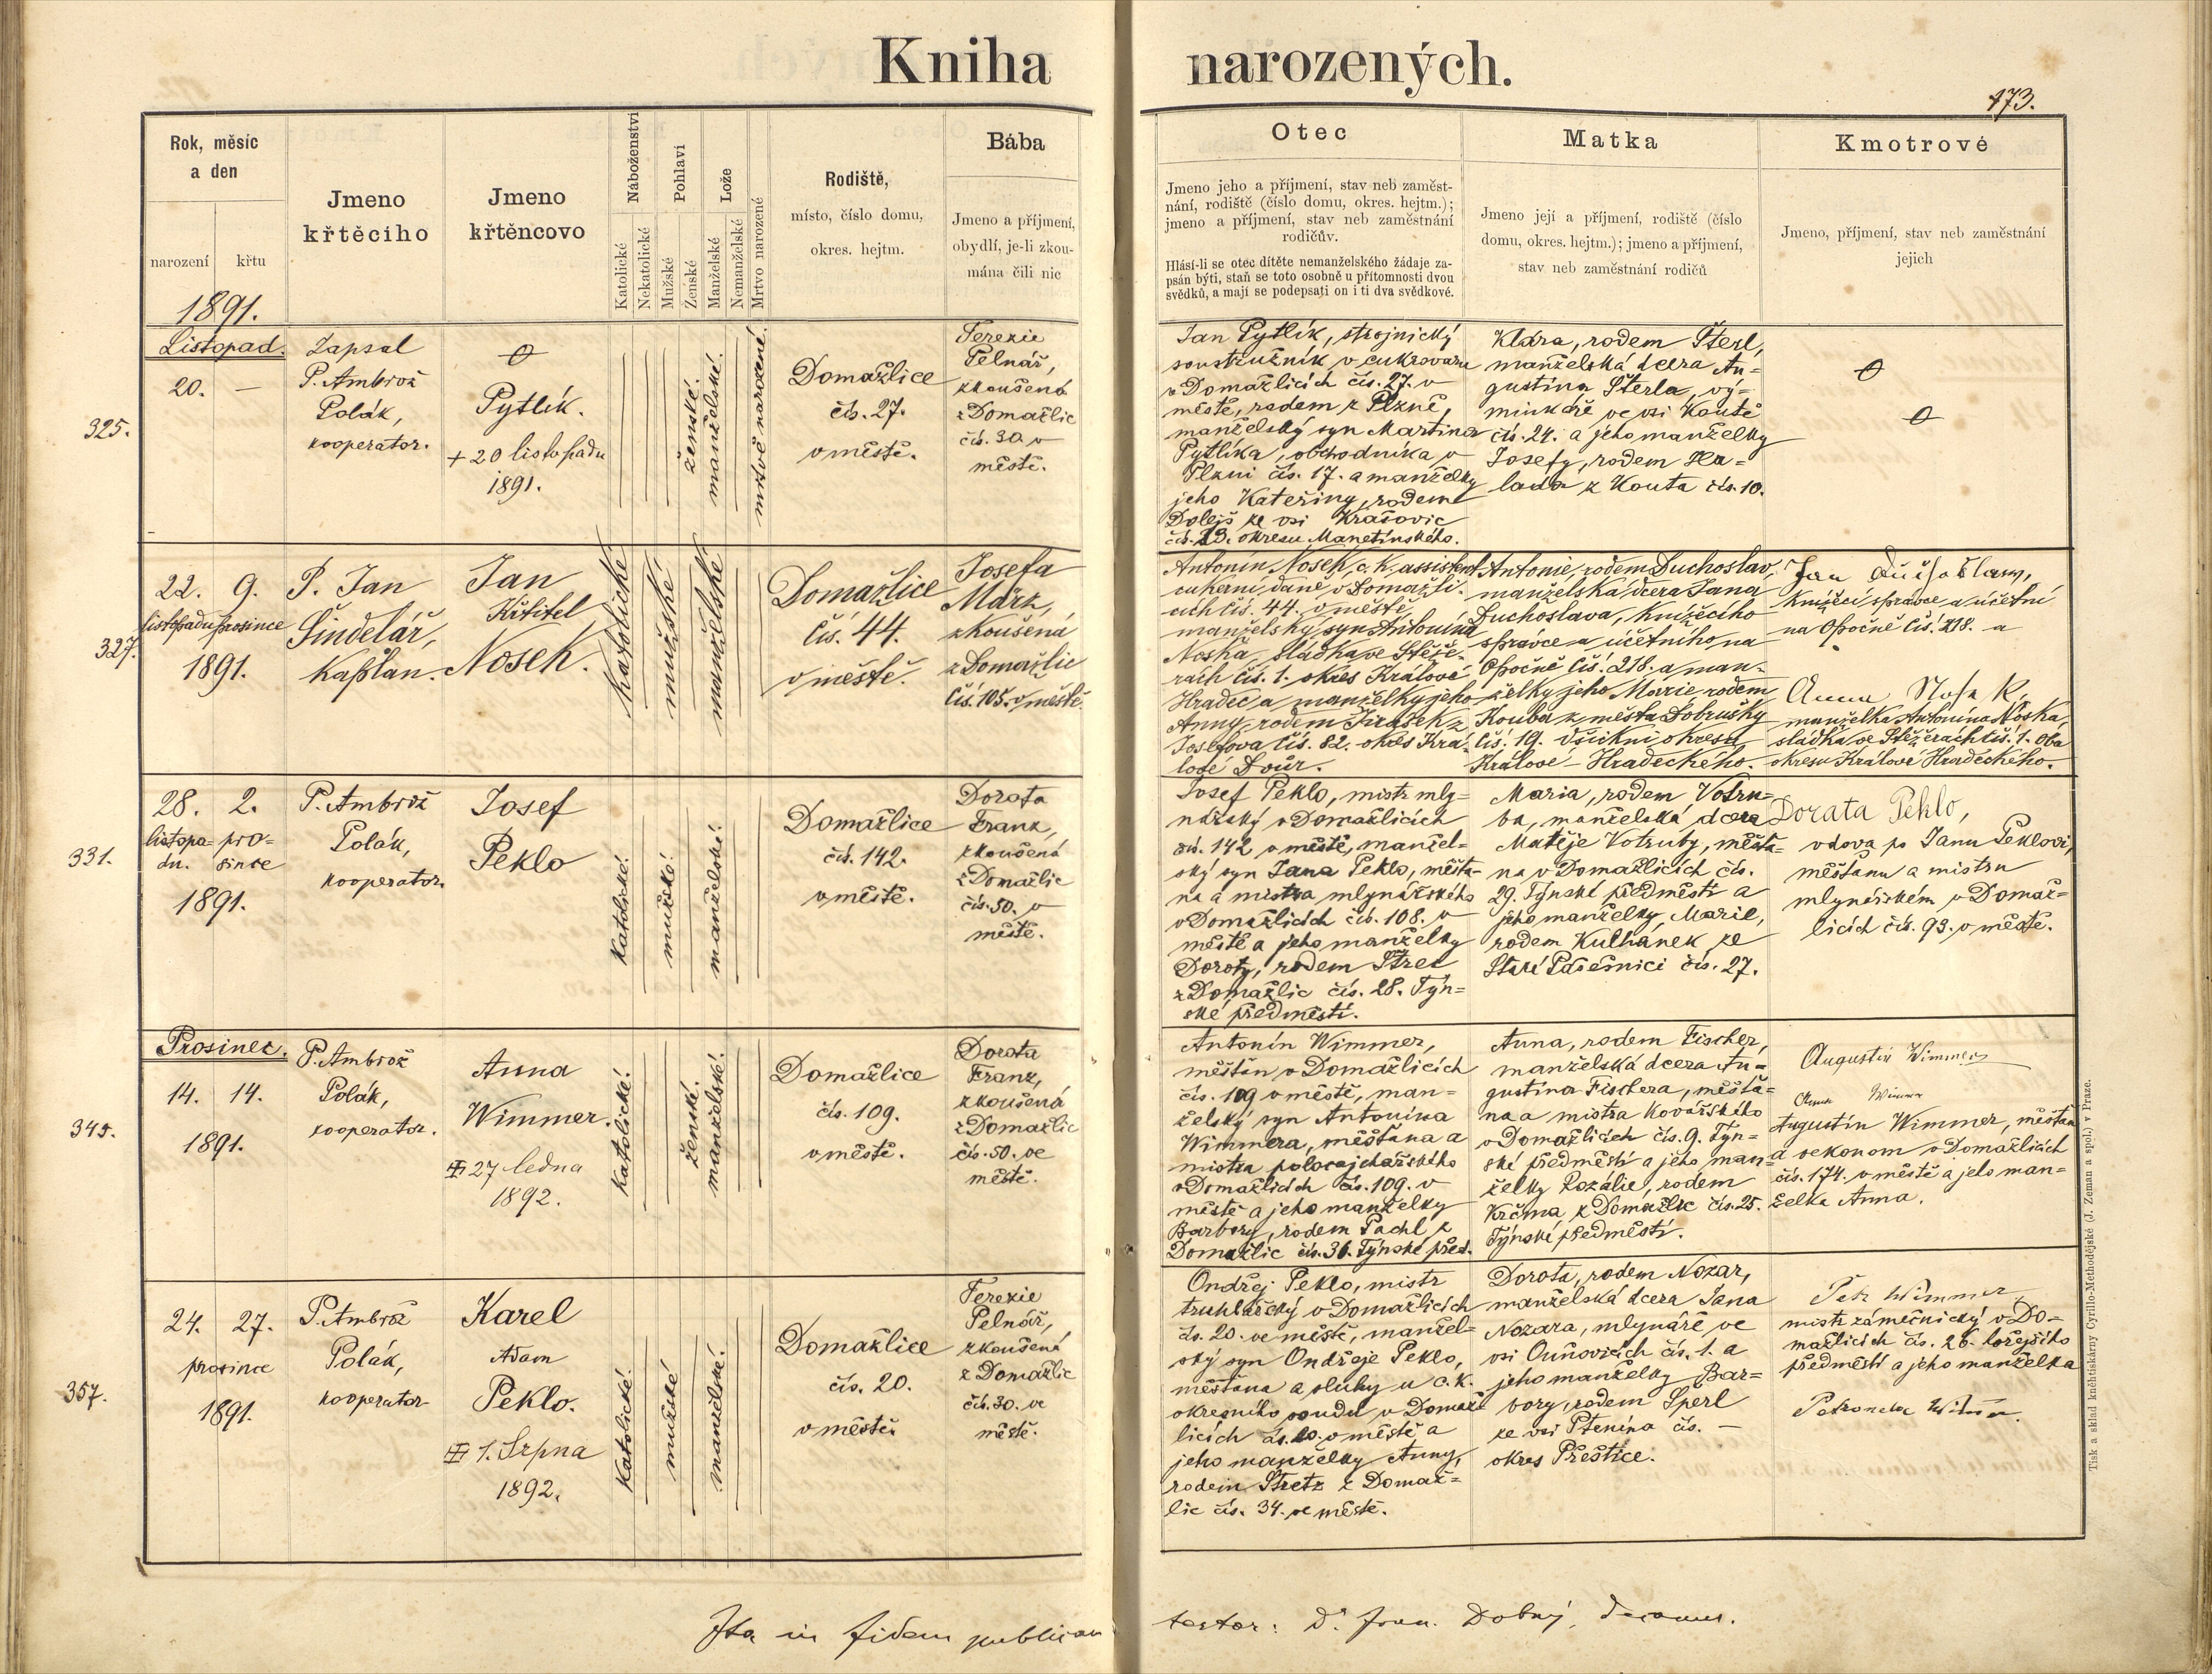 Kniha narozených.
173.
Rok, měsíc
a den
narození
křtu
Jmeno
křtěcího
Jmeno
křtěncovo
Náboženství
Katolické
Nekatolické
Pohlaví
Mužské
Ženské
Lože
Manželské
Nemanželské
Mrtvo narozené
Rodiště,
místo, číslo domu,
okres. hejtm.
Bába
Jmeno a příjmení,
obydlí, je-li zkou-
mána čili nic
Otec
Jmeno jeho a příjmení, stav neb zaměst-
nání, rodiště (číslo domu, okres. hejtm.);
jmeno a příjmení, stav neb zaměstnání
rodičův.
Hlásí-li se otec dítěte nemanželského žádaje za-
psán býti, staň se toto osobně u přítomnosti dvou
svědků, a mají se podepsati on i ti dva svědkové.
Matka
Jmeno její a příjmení, rodiště (číslo
domu, okres. hejtm.); jmeno a příjmení,
stav neb zaměstnání rodičů
Kmotrové
Jmeno, příjmení, stav neb zaměstnání
jejich
1891.
Listopad.
325.
20. —
Zapsal
P. Ambrož
Polák,
kooperator.
Pytlík.
+ 20 listopadu
1891.
ženské.
manželské.
mrtvě narozené.
Domažlice
čís. 27.
v městě.
Terezie
Pelnář,
zkoušená
z Domažlic
čís. 30. v
městě.
Jan Pytlík, strojnický
soustružník v cukrovaru
v Domažlicích čís. 27. v
městě, rodem z Plzně,
manželský syn Martina
Pytlíka, obchodníka v
Plzni čís. 17. a manželky
jeho Kateřiny, rodem
Dolejš ze vsi Krašovic
čís. 23. okresu Manetínského.
Klára, rodem Šterl,
manželská dcera Au-
gustina Šterla, vý-
minkáře ve vsi Koutě
čís. 24. a jeho manželky
Josefy, rodem Ha-
lada z Kouta čís. 10.
327.
22. 9.
listopadu prosince
1891.
P. Jan
Šindelář,
Kaplan.
Jan
Křtitel
Nosek.
Katolické
mužské
manželské
Domažlice
čís. 44.
v městě.
Josefa
März,
zkoušená
z Domažlic
čís. 105. v městě.
Antonín Nosek, c. k. assistent
cukerní daně v Domažli-
cích čís. 44. v městě,
manželský syn Antonína
Noska, sládka ve Stěže-
rách čís. 1. okres Králové
Hradec a manželky jeho
Anny, rodem Jirásek z
Josefova čís. 82. okres Krá-
lové Dvůr.
Antonie rodem Duchoslav,
manželská dcera Jana
Duchoslava, knížecího
správce a účetního na
Opočně čís. 218. a man-
želky jeho Marie rodem
Kouba z města Dobrušky
čís. 19. všickni okresu
Králové-Hradeckého.
Jan Duchoslav,
Knížecí správce a účetní
na Opočně čís. 218. a
Anna
manželka Antonína Noska,
sládka ve Stěžerách čís. 1. oba
okresu Králové Hradeckého.
331.
28. 2.
listopa- pro-
du. since
1891.
P. Ambrož
Polák,
kooperator.
Josef
Peklo
Katolické.
mužské.
manželské.
Domažlice
čís. 142.
v městě.
Dorota
Franz,
zkoušená
z Domažlic
čís. 50. v
městě.
Josef Peklo, mistr mly-
nářský v Domažlicích
čís. 142 v městě, manžel-
ský syn Jana Peklo, měšťa-
na a mistra mlynářského
v Domažlicích čís. 108. v
městě a jeho manželky
Doroty, rodem Strec
z Domažlic čís. 28. Týn-
ské předměstí.
Maria, rodem Votru-
ba, manželská dcera
Matěje Votruby, měšťa-
na v Domažlicích čís.
29. Týnské předměstí a
jeho manželky Marie,
rodem Kulhánek ze
Staré Pasečnici čís. 27.
Dorata Peklo,
vdova po Janu Peklovi,
měšťanu a mistru
mlynářském v Domaž-
licích čís. 93. v městě.
Prosinec.
345.
14. 14.
1891.
P. Ambrož
Polák,
kooperator.
Anna
Wimmer.
27 ledna
1892.
Katolické.
ženské.
manželské.
Domažlice
čís. 109.
v městě.
Dorota
Franz,
zkoušená
z Domažlic
čís. 50. ve
městě.
Antonín Wimmer,
měšťan v Domažlicích
čís. 109 v městě, man-
želský syn Antonína
Wimmera, měšťana a
mistra
v Domažlicích čís. 109. v
městě a jeho manželky
Barbory, rodem Pachl z
Domažlic čís. 36. Týnské před.
Anna, rodem Fischer,
manželská dcera Au-
gustina Fischera, měšťa-
na a mistra kovářského
v Domažlicích čís. 9. Týn-
ské předměstí a jeho man-
želky Rozálie, rodem
Krčma z Domažlic čís. 25.
Týnské předměstí.
Augustin Wimmer
Anna Wimmer
Augustin Wimmer, měšťan
a oekonom v Domažlicích
čís. 174. v městě a jeho man-
želka Anna.
357.
24. 27.
prosince
1891.
P. Ambrož
Polák,
kooperator
Karel
Adam
Peklo.
1. Srpna
1892.
Katolické.
mužské
manželské.
Domažlice
čís. 20.
v městě.
Terezie
Pelnář,
zkoušená
z Domažlic
čís. 30. ve
městě.
Ondřej Peklo, mistr
truhlářský v Domažlicích
čís. 20. ve městě, manžel-
ský syn Ondřeje Peklo,
měšťana a sluhy u c. k.
okresního soudu v Domaž-
licích čís. 20. v městě a
jeho manželky Anny,
rodem Stretz z Domaž-
lic čís. 34. ve městě.
Dorota, rodem Nozar,
manželská dcera Jana
Nozara, mlynáře ve
vsi Ouňovicích čís. 1. a
jeho manželky Bar-
bory, rodem Šperl
ze vsi Ptenína čís. —
okres Přeštice.
Petr Wimmer
mistr zámečnický v Do-
mažlicích čís. 26. hořejšího
předměstí a jeho manželka
Petronela
Ita in fidem publicam testor: Dr. Fran. Dobný, decanus.
Tisk a sklad knihtiskárny Cyrillo-Methodějské (J. Zeman a spol.) v Praze.